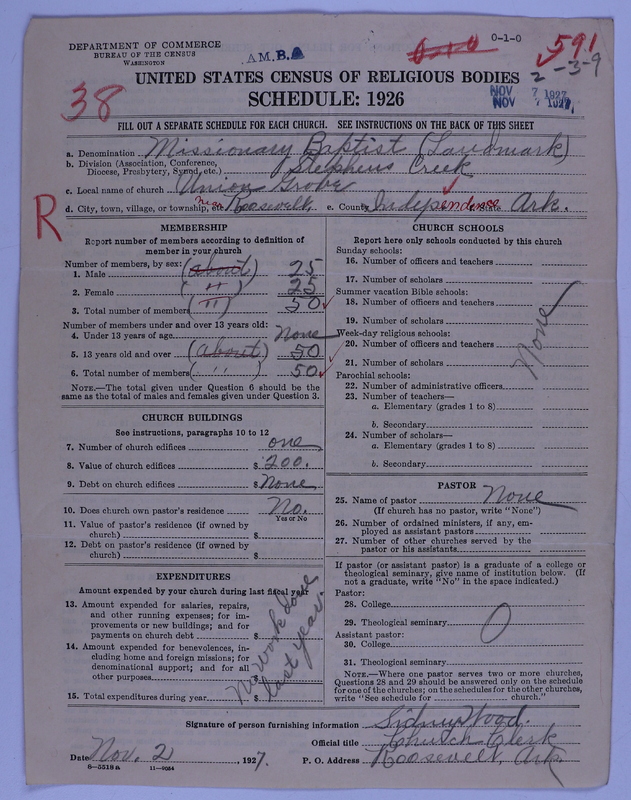 DEPARTMENT OF COMMERCE
BUREAU OF THE CENSUS
WASHINGTON
A.M.B.A
0-1-0
0-1-0
591
2-3-9
UNITED STATES CENSUS OF RELIGIOUS BODIES
SCHEDULE: 1926
NOV 7 1927
NOV 7 1927
38
FILL OUT A SEPARATE SCHEDULE FOR EACH CHURCH. SEE INSTRUCTIONS ON THE BACK OF THIS SHEET
a. Denomination Missionary Baptist (Landmark)
b. Division (Association, Conference, Diocese, Presbytery, Synod, etc.) Stephens Creek
c. Local name of church Union Grove
d. City, town, village, or township, etc. near Roosevelt e. County Independence State Ark.
R
MEMBERSHIP
Report number of members according to definition of
member in your church
Number of members, by sex:
1. Male (about) 25
2. Female ( " ) 25
3. Total number of members ( " ) 50
Number of members under and over 13 years old:
4. Under 13 years of age None
5. 13 years old and over (About) 50
6. Total number of members ( " ) 50
NOTE.—The total given under Question 6 should be the
same as the total of males and females given under Question 3.
CHURCH BUILDINGS
See instructions, paragraphs 10 to 12
7. Number of church edifices one
8. Value of church edifices $ 200.
9. Debt on church edifices $ None
10. Does church own pastor's residence No.
Yes or No
11. Value of pastor's residence (if owned by
church) $
12. Debt on pastor's residence (if owned by
church) $
EXPENDITURES
Amount expended by your church during last fiscal year
13. Amount expended for salaries, repairs,
and other running expenses; for im-
provements or new buildings; and for
payments on church debt $
14. Amount expended for benevolences, in-
cluding home and foreign missions; for
denominational support; and for all
other purposes $
15. Total expenditures during year $
No work done
last year.
CHURCH SCHOOLS
Report here only schools conducted by this church
Sunday schools:
16. Number of officers and teachers
17. Number of scholars
Summer vacation Bible schools:
18. Number of officers and teachers
19. Number of scholars
Week-day religious schools:
20. Number of officers and teachers
21. Number of scholars
None
Parochial schools:
22. Number of administrative officers
23. Number of teachers—
a. Elementary (grades 1 to 8)
b. Secondary
24. Number of scholars—
a. Elementary (grades 1 to 8)
b. Secondary
PASTOR
25. Name of pastor None
(If church has no pastor, write "None")
26. Number of ordained ministers, if any, em-
ployed as assistant pastors
27. Number of other churches served by the
pastor or his assistants
If pastor (or assistant pastor) is a graduate of a college or
theological seminary, give name of institution below. (If
not a graduate, write "No" in the space indicated.)
Pastor:
28. College
29. Theological seminary
0
Assistant pastor:
30. College
31. Theological seminary
NOTE.—Where one pastor serves two or more churches,
Questions 28 and 29 should be answered only on the schedule
for one of the churches; on the schedules for the other churches,
write "See schedule for church."
Signature of person furnishing information Sidney Wood.
Official title Church Clerk
Date Nov. 2, 1927. P. O. Address Roosevelt, Ark.
8-5518a 11-9034